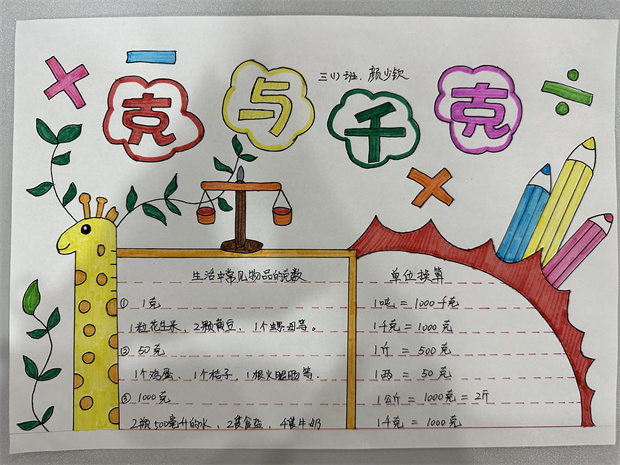 克与千克
三(1)班 颜少钦
生活中常见物品的克数
① 1克
1粒花生米、2颗黄豆、1个螺母等。
② 50克
1个鸡蛋、1个桔子、1根火腿肠等.
③ 1000克
2瓶500毫升的水、2袋食盐、4袋牛奶
单位换算
1吨 = 1000千克
1千克 = 1000克
1斤 = 500克
1两 = 50克
1公斤 = 1000克 = 2斤
1千克 = 1000克